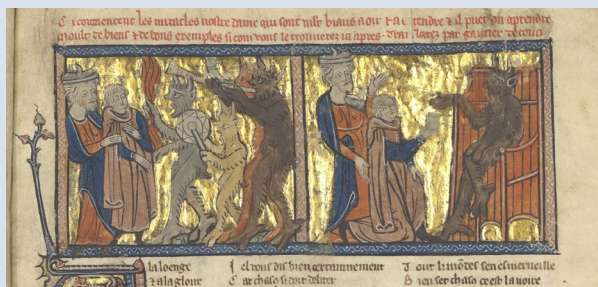 Ci comencent les miracles nostre dame qui sont mlt biaus a oir & a entendre & il puet on aprendre
moult de biens & de bons exemples si com vous le trouverez ia apres. Trai  par gautier de coinci
la loenge
& a la gloire
Iel vous di bien certainnement
Car chascun
Touz li mondes sen esmerveille
Bien set chascun ce est la voire